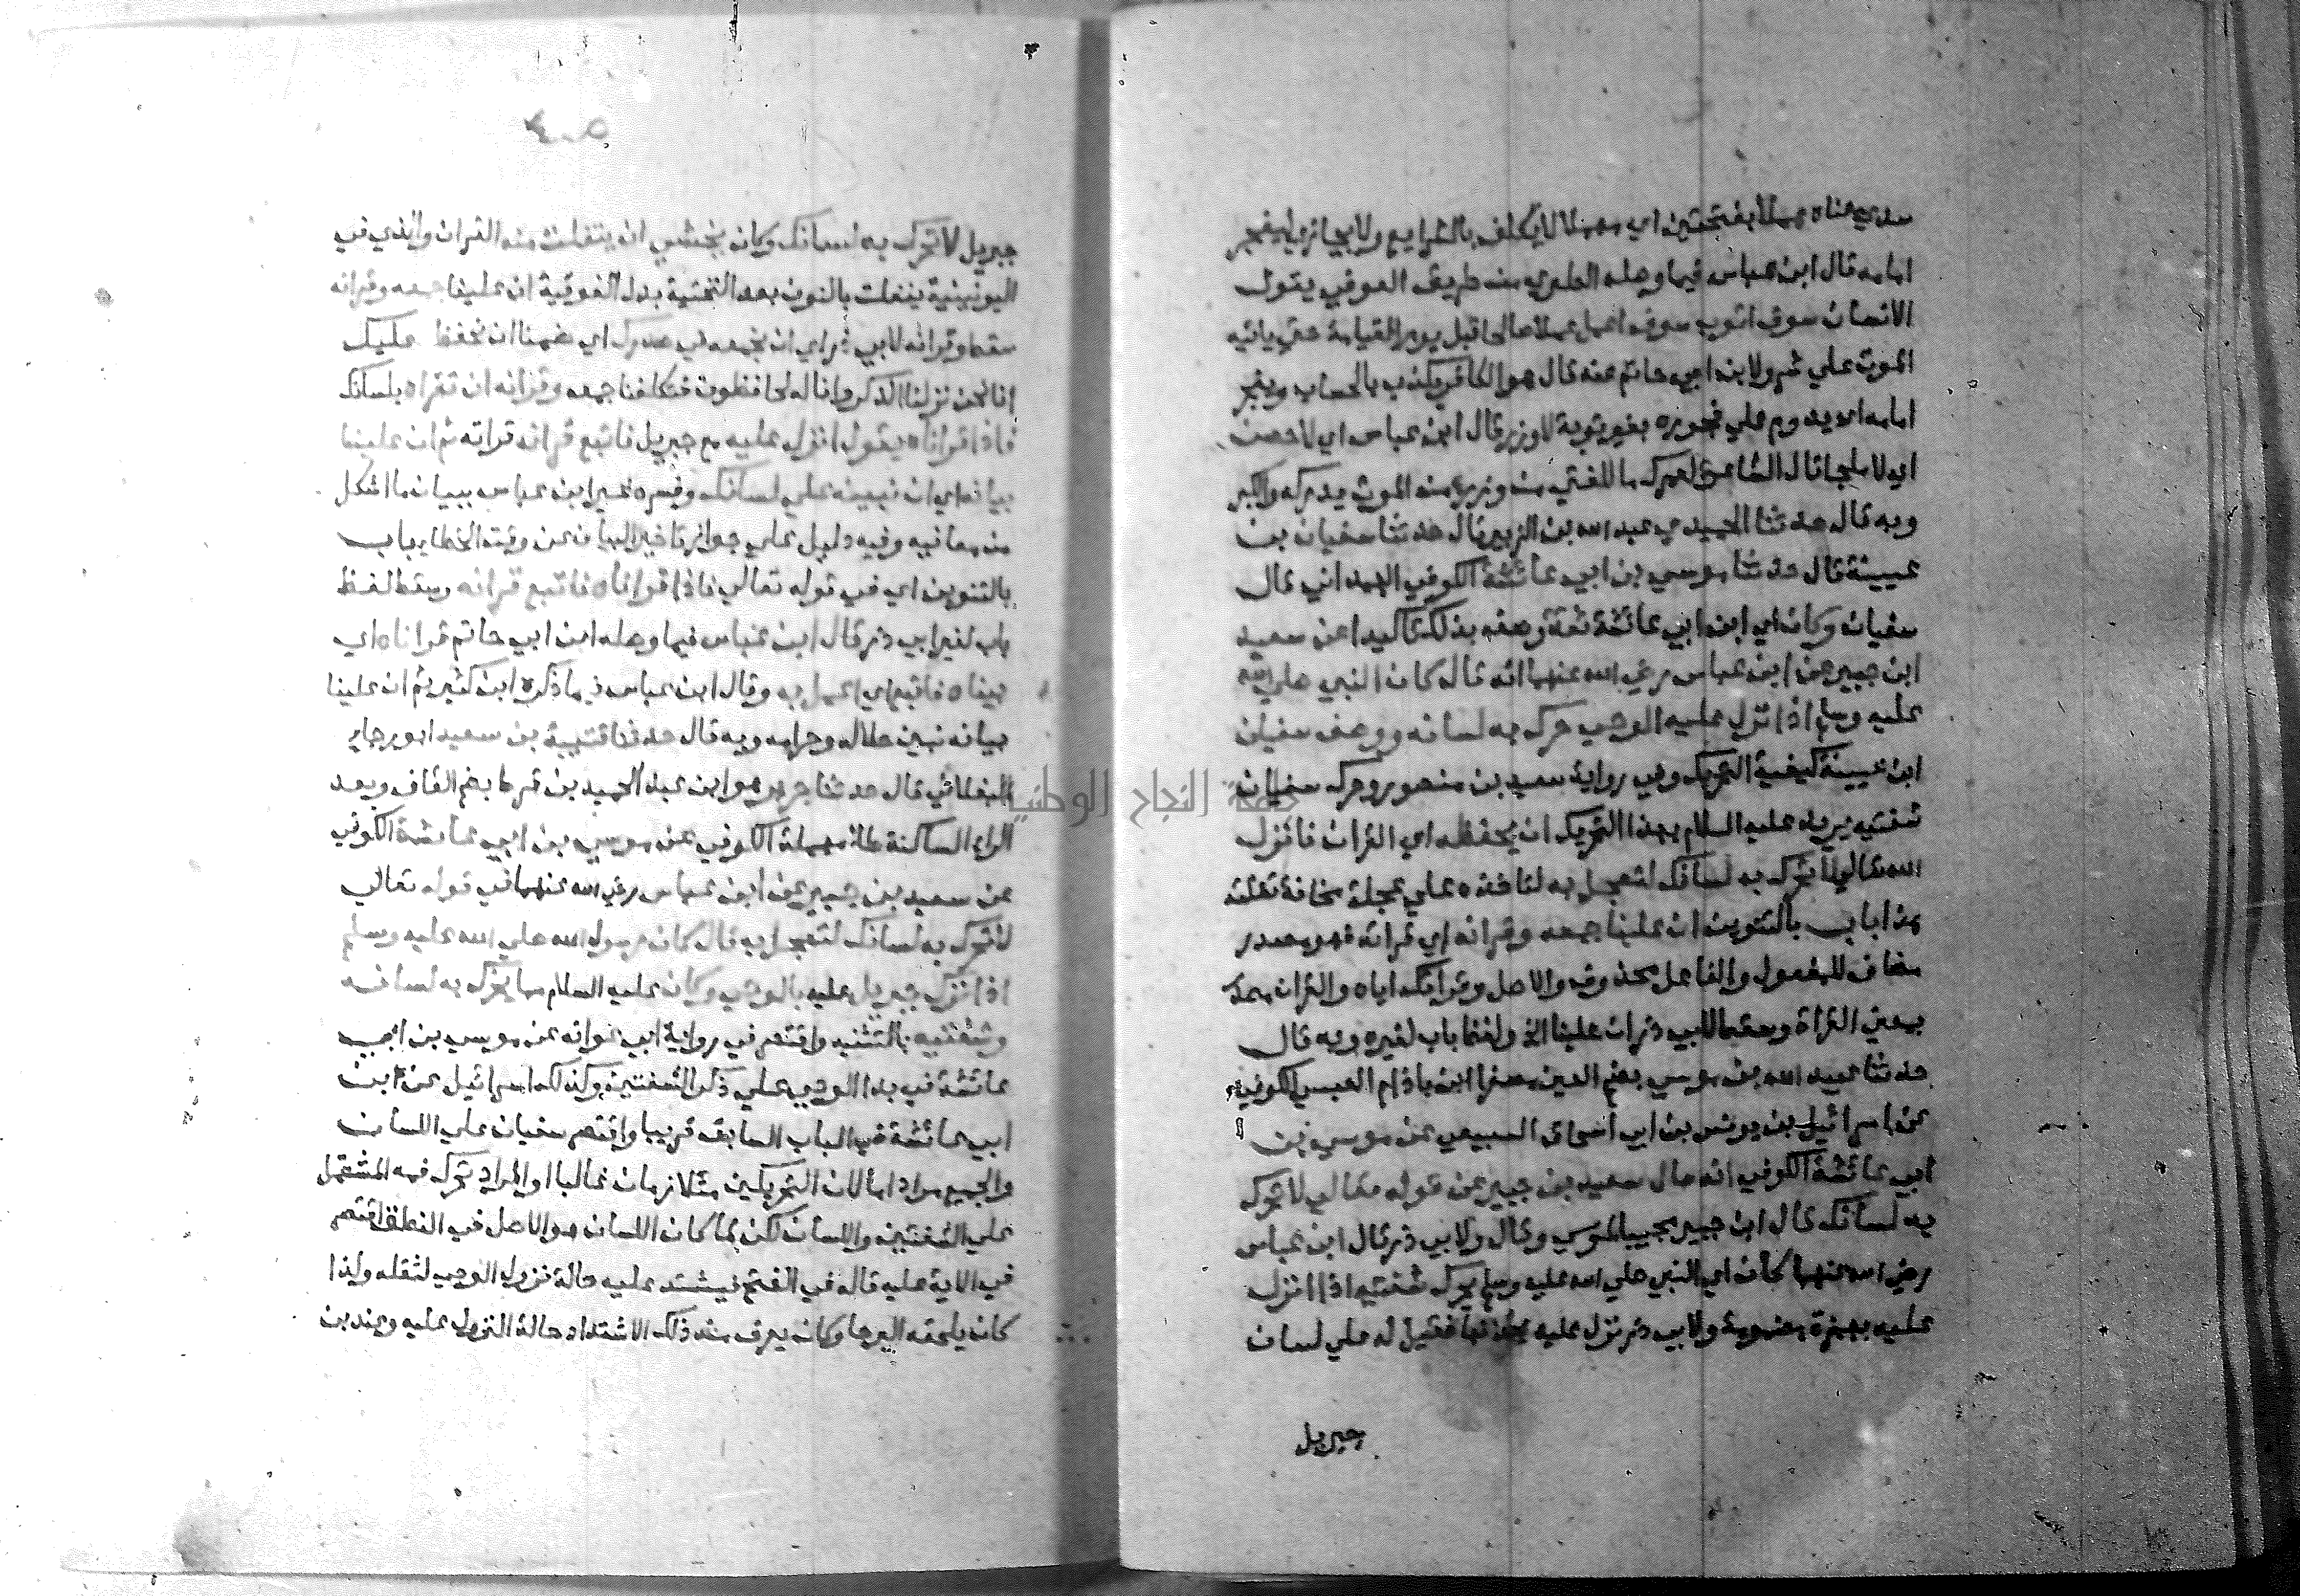 سدي معناه هملا بفتحتين اي مهملا لا يكلف بالشرايع ولا يجازي ليفجر
امامه قال ابن عباس فيما وصله الطبري من طريق العوفي يقول
الانسان سوف اتوب سوف اعمل عملا صالحا قبل يوم القيامة حتي ياتيه
الموت علي شر ولابن ابي حاتم عنه قال هو الكافر يكذب بالحساب ويفجر
امامه اي يدوم علي فجوره بغير توبة لا وزر قال ابن عباس اي لا حصن
اي لا ملجا قال الشاعر لعمرك ما للفتي من وزر من الموت يدركه والكبر
وبه قال حدثنا الحميدي عبد الله بن الزبير قال حدثنا سفيان بن
عيينة قال حدثنا موسي بن ابي عائشة الكوفي الهمداني قال
سفيان وكان اي ابن ابي عائشة ثقة وصفه بذلك تاكيدا عن سعيد
ابن جبير عن ابن عباس رضي الله عنهما انه قال كان النبي صلي الله
عليه وسلم اذا نزل عليه الوحي حرك به لسانه ووصف سفيان
ابن عيينة كيفية التحريك وفي رواية سعيد بن منصور وحرك سفيان
شفتيه يريد عليه السلام بهذا التحريك ان يحفظه اي القران فانزل
الله تعالي لا تحرك به لسانك لتعجل به لتاخذه علي عجلة مخافة تفلته
هذا باب بالتنوين ان علينا جمعه وقرانه اي قراته فهو مصدر
مضاف للمفعول والفاعل محذوف والاصل وقراتك اياه والقران مصدر
بمعني القراة وسقط لابي ذر ان علينا الخ ولفظ باب لغيره وبه قال
حدثنا عبيد الله بن موسي بضم العين مصغرا ابن باذام العبسي الكوفي
عن اسرائيل بن يونس بن ابي اسحاق السبيعي عن موسي بن
ابي عائشة الكوفي انه سال سعيد بن جبير عن قوله تعالي لا تحرك
به لسانك قال ابن جبير مجيبا لموسي وقال ولابي ذر قال ابن عباس
رضي الله عنهما كان اي النبي صلي الله عليه وسلم يحرك شفتيه اذا انزل
عليه بهمزة مضمومة ولابي ذر نزل عليه بحذفها فقيل له علي لسان
جبريل
٤٠٥
جبريل لا تحرك به لسانك وكان يخشي ان يتفلت منه القران والذي في
اليونينية ينفلت بالنون بعد التحتية بدل الفوقية ان علينا جمعه وقرانه
سقط وقرانه لابي ذر اي ان نجمعه في صدرك اي ضمنا ان نحفظ عليك
انا نحن نزلنا الذكر وانا له لحافظون فتكلفنا جمعه وقرانه ان تقراه بلسانك
فاذا قراناه يقول انزل عليه مع جبريل فاتبع قرانه قراته ثم ان علينا
بيانه اي ان نبينه علي لسانك وفسره غير ابن عباس ببيان ما اشكل
من معانيه وفيه دليل علي جواز تاخير البيان عن وقت الخطاب باب
بالتنوين اي في قوله تعالي فاذا قراناه فاتبع قرانه وسقط لفظ
باب لغير ابي ذر قال ابن عباس فيما وصله ابن ابي حاتم قراناه اي
بيناه فاتبع اي اعمل به وقال ابن عباس فيما ذكره ابن كثير ثم ان علينا
بيانه نبين حلاله وحرامه وبه قال حدثنا قتيبة بن سعيد ابو رجاء
البغلاني قال حدثنا جرير هو ابن عبد الحميد بن قرط بضم القاف وبعد
الراء الساكنة طاء مهملة الكوفي عن موسي بن ابي عائشة الكوفي
عن سعيد بن جبير عن ابن عباس رضي الله عنهما في قوله تعالي
لا تحرك به لسانك لتعجل به قال كان رسول الله صلي الله عليه وسلم
اذا نزل جبريل عليه بالوحي وكان عليه السلام مما يحرك به لسانه
وشفتيه بالتثنيه واقتصر في رواية ابي عوانه عن موسي بن ابي
عائشة في بدا الوحي علي ذكر الشفتين وكذلك اسرائيل عن ابن
ابي عائشة في الباب السابق قريبا واقتصر سفيان علي اللسان
والجميع مراد اما لان التحريكين متلازمان غالبا او المراد تحرك فمه المشتمل
علي الشفتين واللسان لكن لما كان اللسان هو الاصل في النطق اقتصر
في الاية عليه قاله في الفتح فيشتد عليه حالة نزول الوحي لثقله ولذا
كان يلحقه البرحا وكان يعرف منه ذلك الاشتداد حالة النزول عليه وعند بن
جامعة النجاح الوطنية